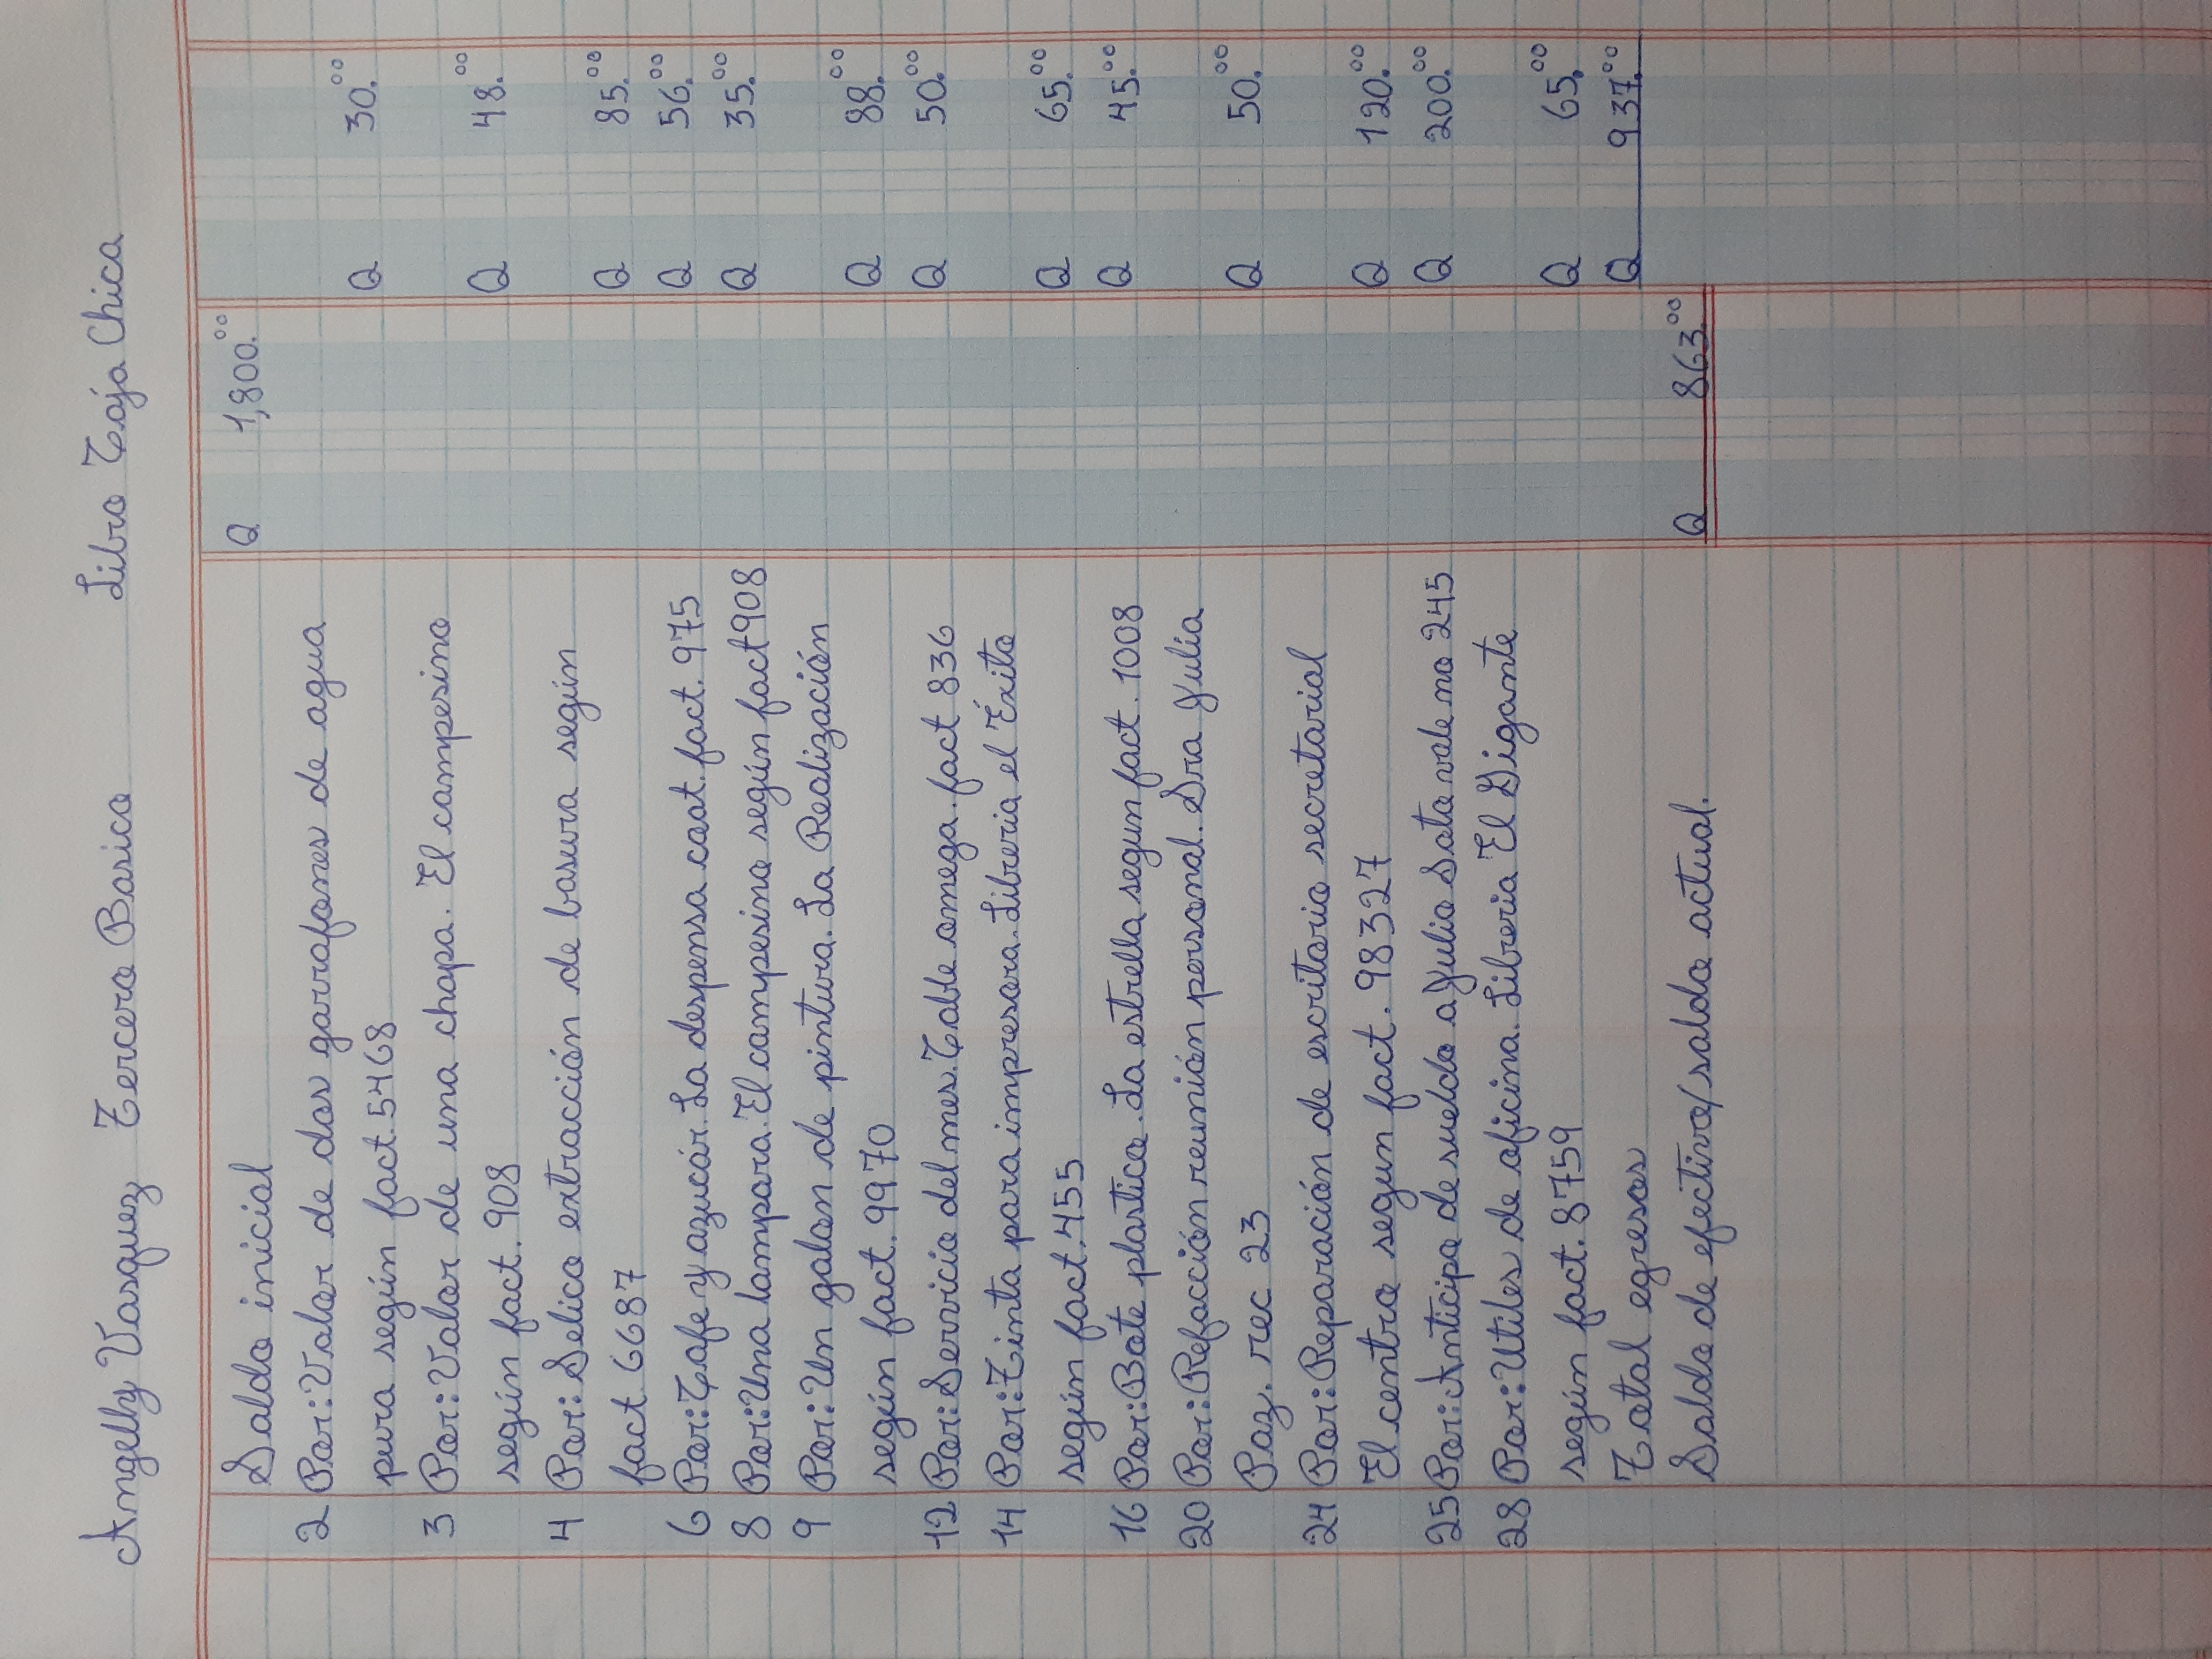 Angelly Vasquez Tercero Basico Libro Caja Chica
Saldo inicial Q 1,800.00
2 Por: Valor de dos garrafones de agua
pura según fact. 5468 Q 30.00
3 Por: Valor de una chapa. El campesino
según fact. 908 Q 48.00
4 Por: Selico extracción de basura según
fact 6687 Q 85.00
6 Por: Cafe y azucár. La despensa cast. fact. 975 Q 56.00
8 Por: Una lampara. El campesino según fact 908 Q 35.00
9 Por: Un galon de pintura. La Realización
según fact. 9970 Q 88.00
12 Por: Servicio del mes. Cable omega. fact 836 Q 50.00
14 Por: Tinta para impresora. Libreria el Éxito
según fact. 455 Q 65.00
16 Por: Bote plastico. La estrella segun fact. 1008 Q 45.00
20 Por: Refacción reunión personal. Sra Julia
Paz. rec 23 Q 50.00
24 Por: Reparación de escritorio secretarial
El centro segun fact. 98327 Q 120.00
25 Por: Anticipo de sueldo a Julio Sota vale no 245 Q 200.00
28 Por: Utiles de oficina. Libreria El Gigante
según fact. 8759 Q 65.00
Total egresos Q 937.00
Saldo de efectivo/saldo actual. Q 863.00